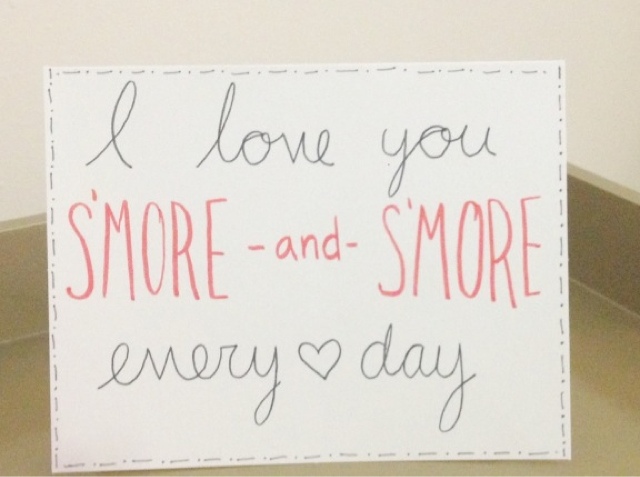 I love you
S'MORE -and- S'MORE
every ♡ day